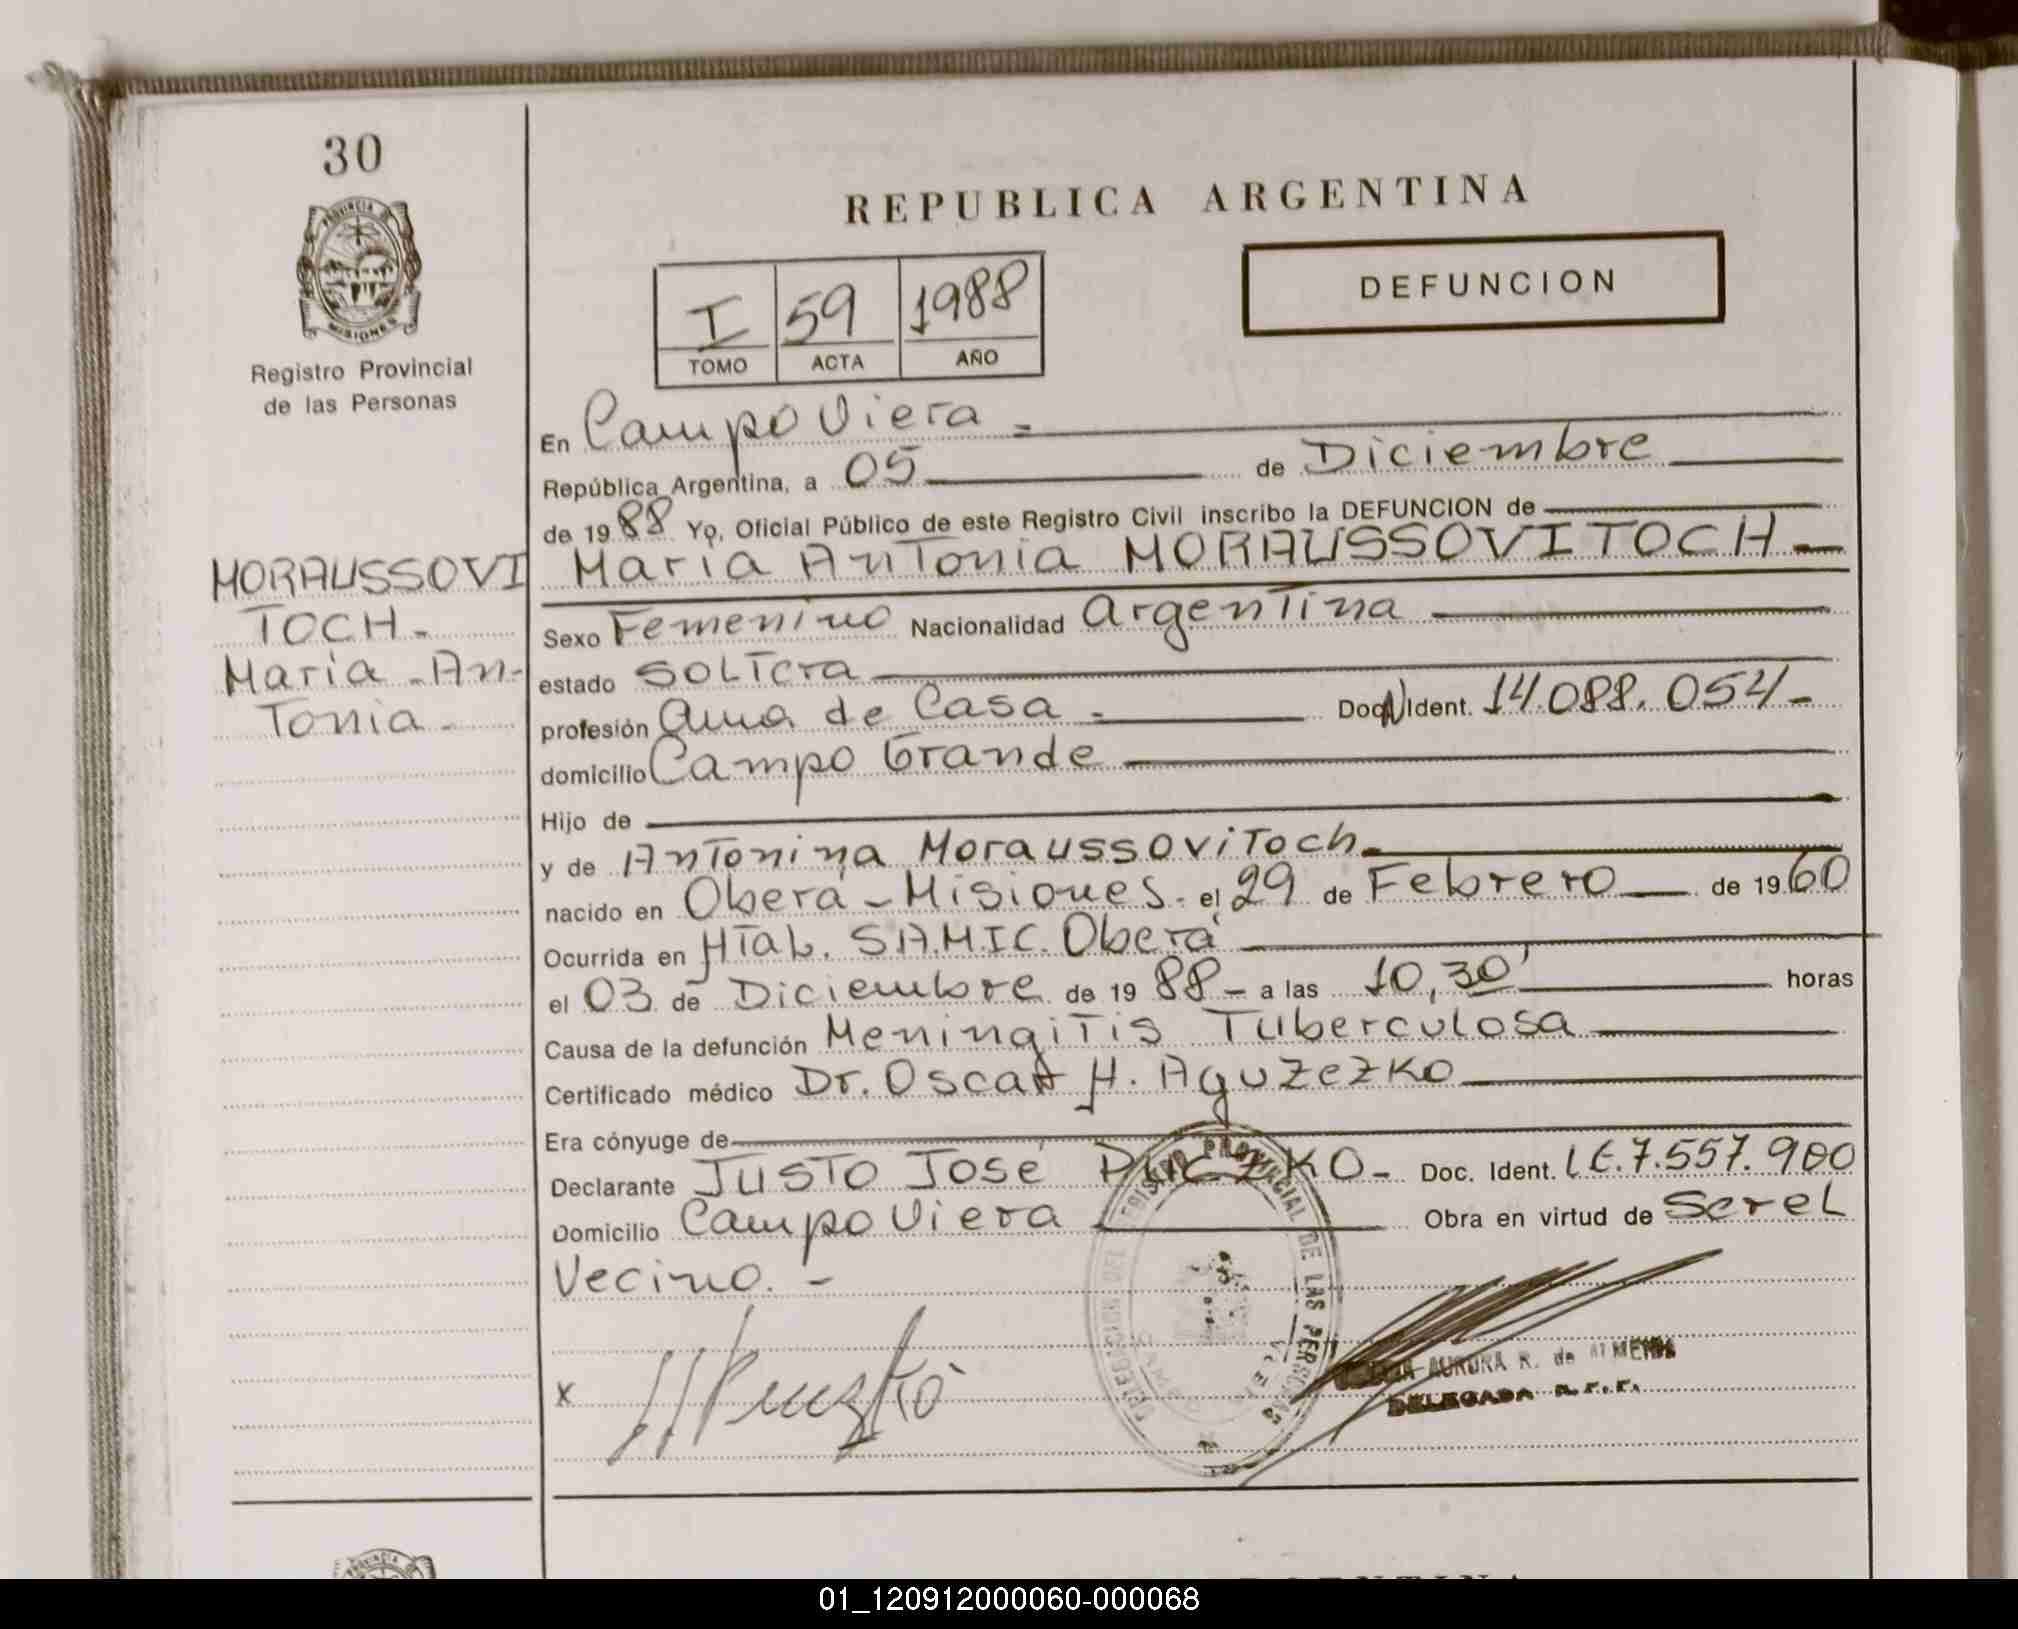 30
PROVINCIA DE
MISIONES
Registro Provincial
de las Personas
MORAUSSOVI
TOCH.
Maria - An-
Tonia -
REPUBLICA ARGENTINA
I 59 1988
TOMO ACTA AÑO
DEFUNCION
En Campo Viera -
República Argentina, a 05 de Diciembre
de 1988 Yo, Oficial Público de este Registro Civil inscribo la DEFUNCION de
Maria Antonia MORAUSSOVITOCH -
Sexo Femenino Nacionalidad Argentina
estado Soltera
profesión Ama de Casa - Doc. N Ident. 14.088.054-
domicilio Campo Grande
Hijo de
y de Antonina Moraussovitoch.
nacido en Oberá - Misiones - el 29 de Febrero de 1960
Ocurrida en Htal. S.A.M.I.C. Oberá
el 03 de Diciembre de 1988 - a las 10,30' horas
Causa de la defunción Meningitis Tuberculosa
Certificado médico Dr. Oscar H. Aguzezko
Era cónyuge de
Declarante Justo José KO- Doc. Ident. LE.7.557.900
Domicilio Campo Viera Obra en virtud de Ser el
Vecino. -
DELEGACION DEL REGISTRO PROVINCIAL DE LAS PERSONAS
x
AURORA R. de ALMEIDA
DELEGADA
PROVINCIA
01_120912000060-000068